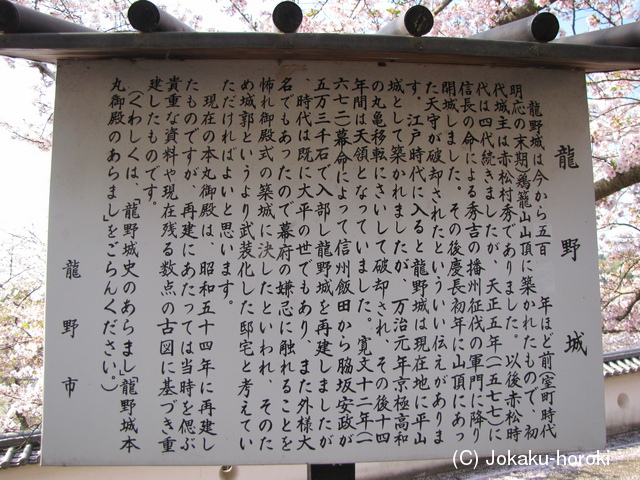 龍野城
龍野城は今から五百年ほど前(室町時代
明応の末期)鶏籠山山頂に築かれたもので、初
代城主は赤松村秀でありました。以後赤松時
代は四代続きましたが、天正五年(一五七七)に
信長の命による秀吉の播州征伐の軍門に降り
開城しました。その後慶長初年に山頂にあっ
た天守が破却されたといういい伝えがありま
す。江戸時代に入ると龍野城は現在地に平山
城として築かれましたが、万治元年京極高和
の丸亀移転にさいして破却され、その後十四
年間は天領となっていました。寛文十二年(一
六七二)幕命によって信州飯田から脇坂安政が
五万三千石で入部し龍野城を再建しましたが
、時代は既に大平の世でもあり、また外様大
名でもあったので幕府の嫌忌に触れることを
怖れ御殿式の築城に決したといわれ、そのた
め城郭というより武装化した邸宅と考えてい
ただければよいと思います。
現在の本丸御殿は、昭和五十四年に再建し
たものですが、再建にあたっては当時を偲ぶ
貴重な資料や現在残る数点の古図に基づき重
建したものです。
(くわしくは、「龍野城史のあらまし」「龍野城本
丸御殿のあらまし」をごらんください。)
龍野市
(C) Jokaku-horoki